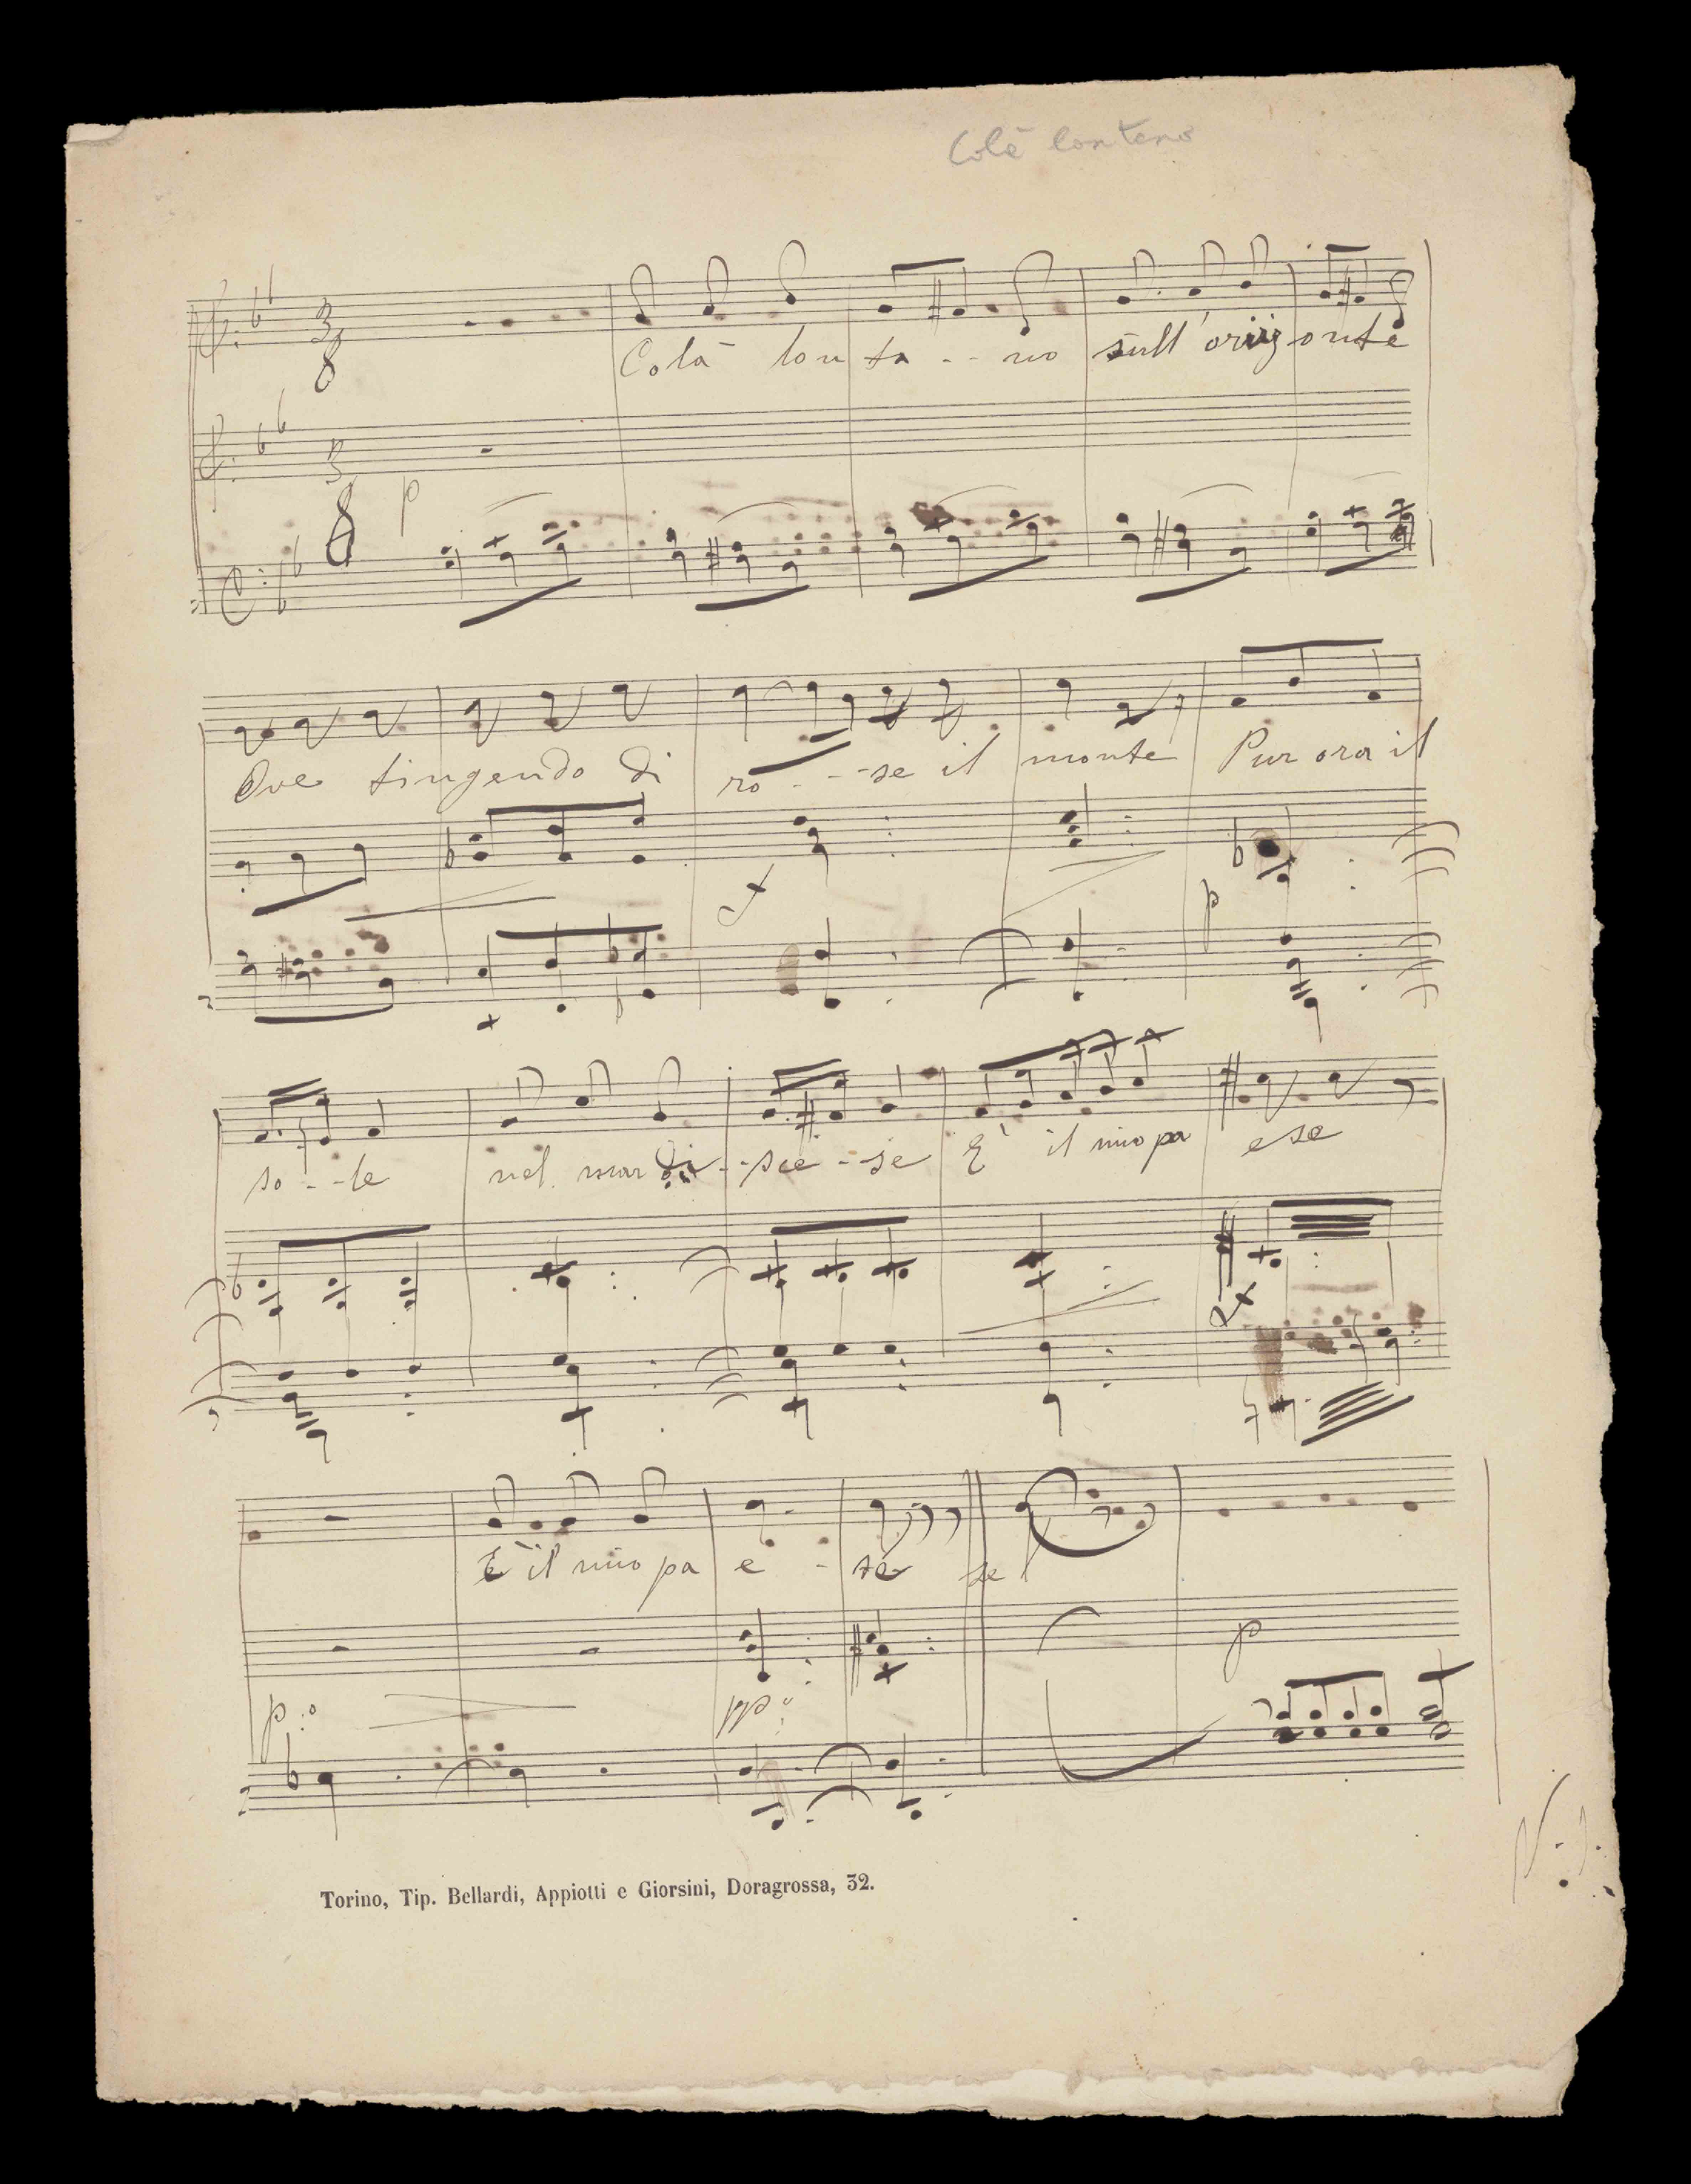 Colà lontano
Colà lonta - - no sull'orizonte
p
Ove tingendo di ro - - - se il monte Pur ora il
f
p
so - - le nel mar di - - sce - - se E' il mio pa ese
f
E' il mio pa e - se se
p
p:o pp:o
Torino, Tip. Bellardi, Appiotti e Giorsini, Doragrossa, 32.